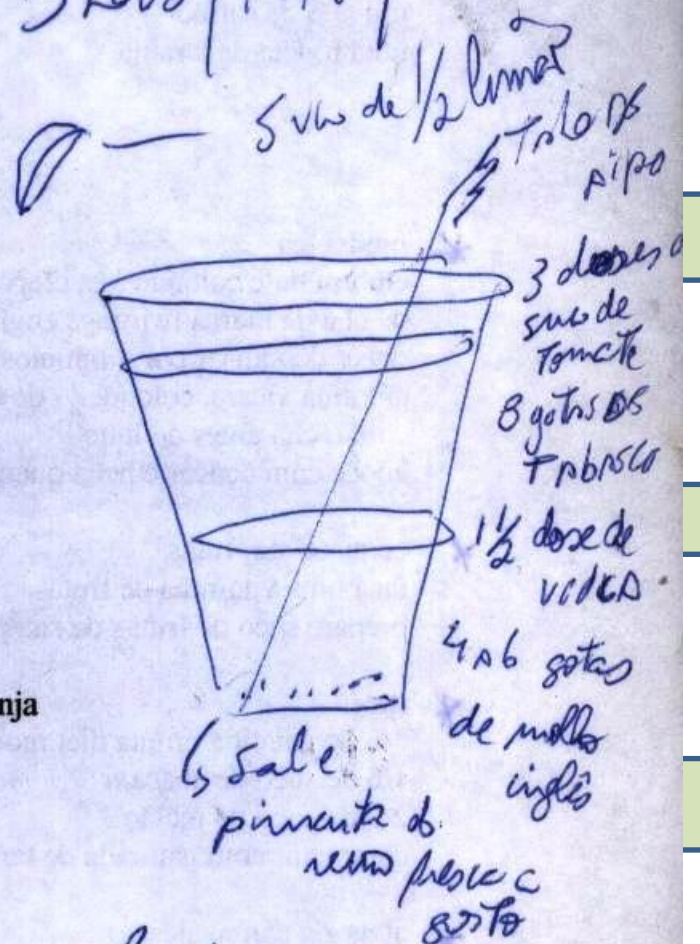 Suco de 1/2 limão
Talo de
aipo
3 doses
suco de
Tomate
8 gotas de
TABASCO
1 1/2 dose de
VODCA
4 a 6 gotas
de molho
inglês
Sal e
pimenta do
reino fresca a
gosto
nja